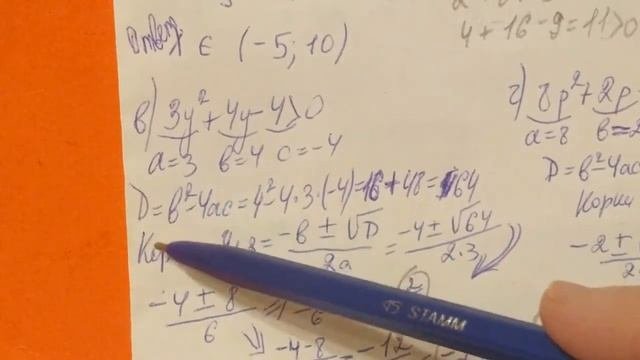 Ответ: ∈ (-5; 10)
4+16-9=11>0
в) 3y²+4y-4>0
a=3 в=4 c=-4
D=в²-4ac=4²-4·3·(-4)=16+48=64
= -в±√D / 2a = -4±√64 / 2·3
-4±8 / 6
-4-8 -12
г) 8p²+2p
a=8 в=2
D=в²-4ac
Корни
-2±
STAMM